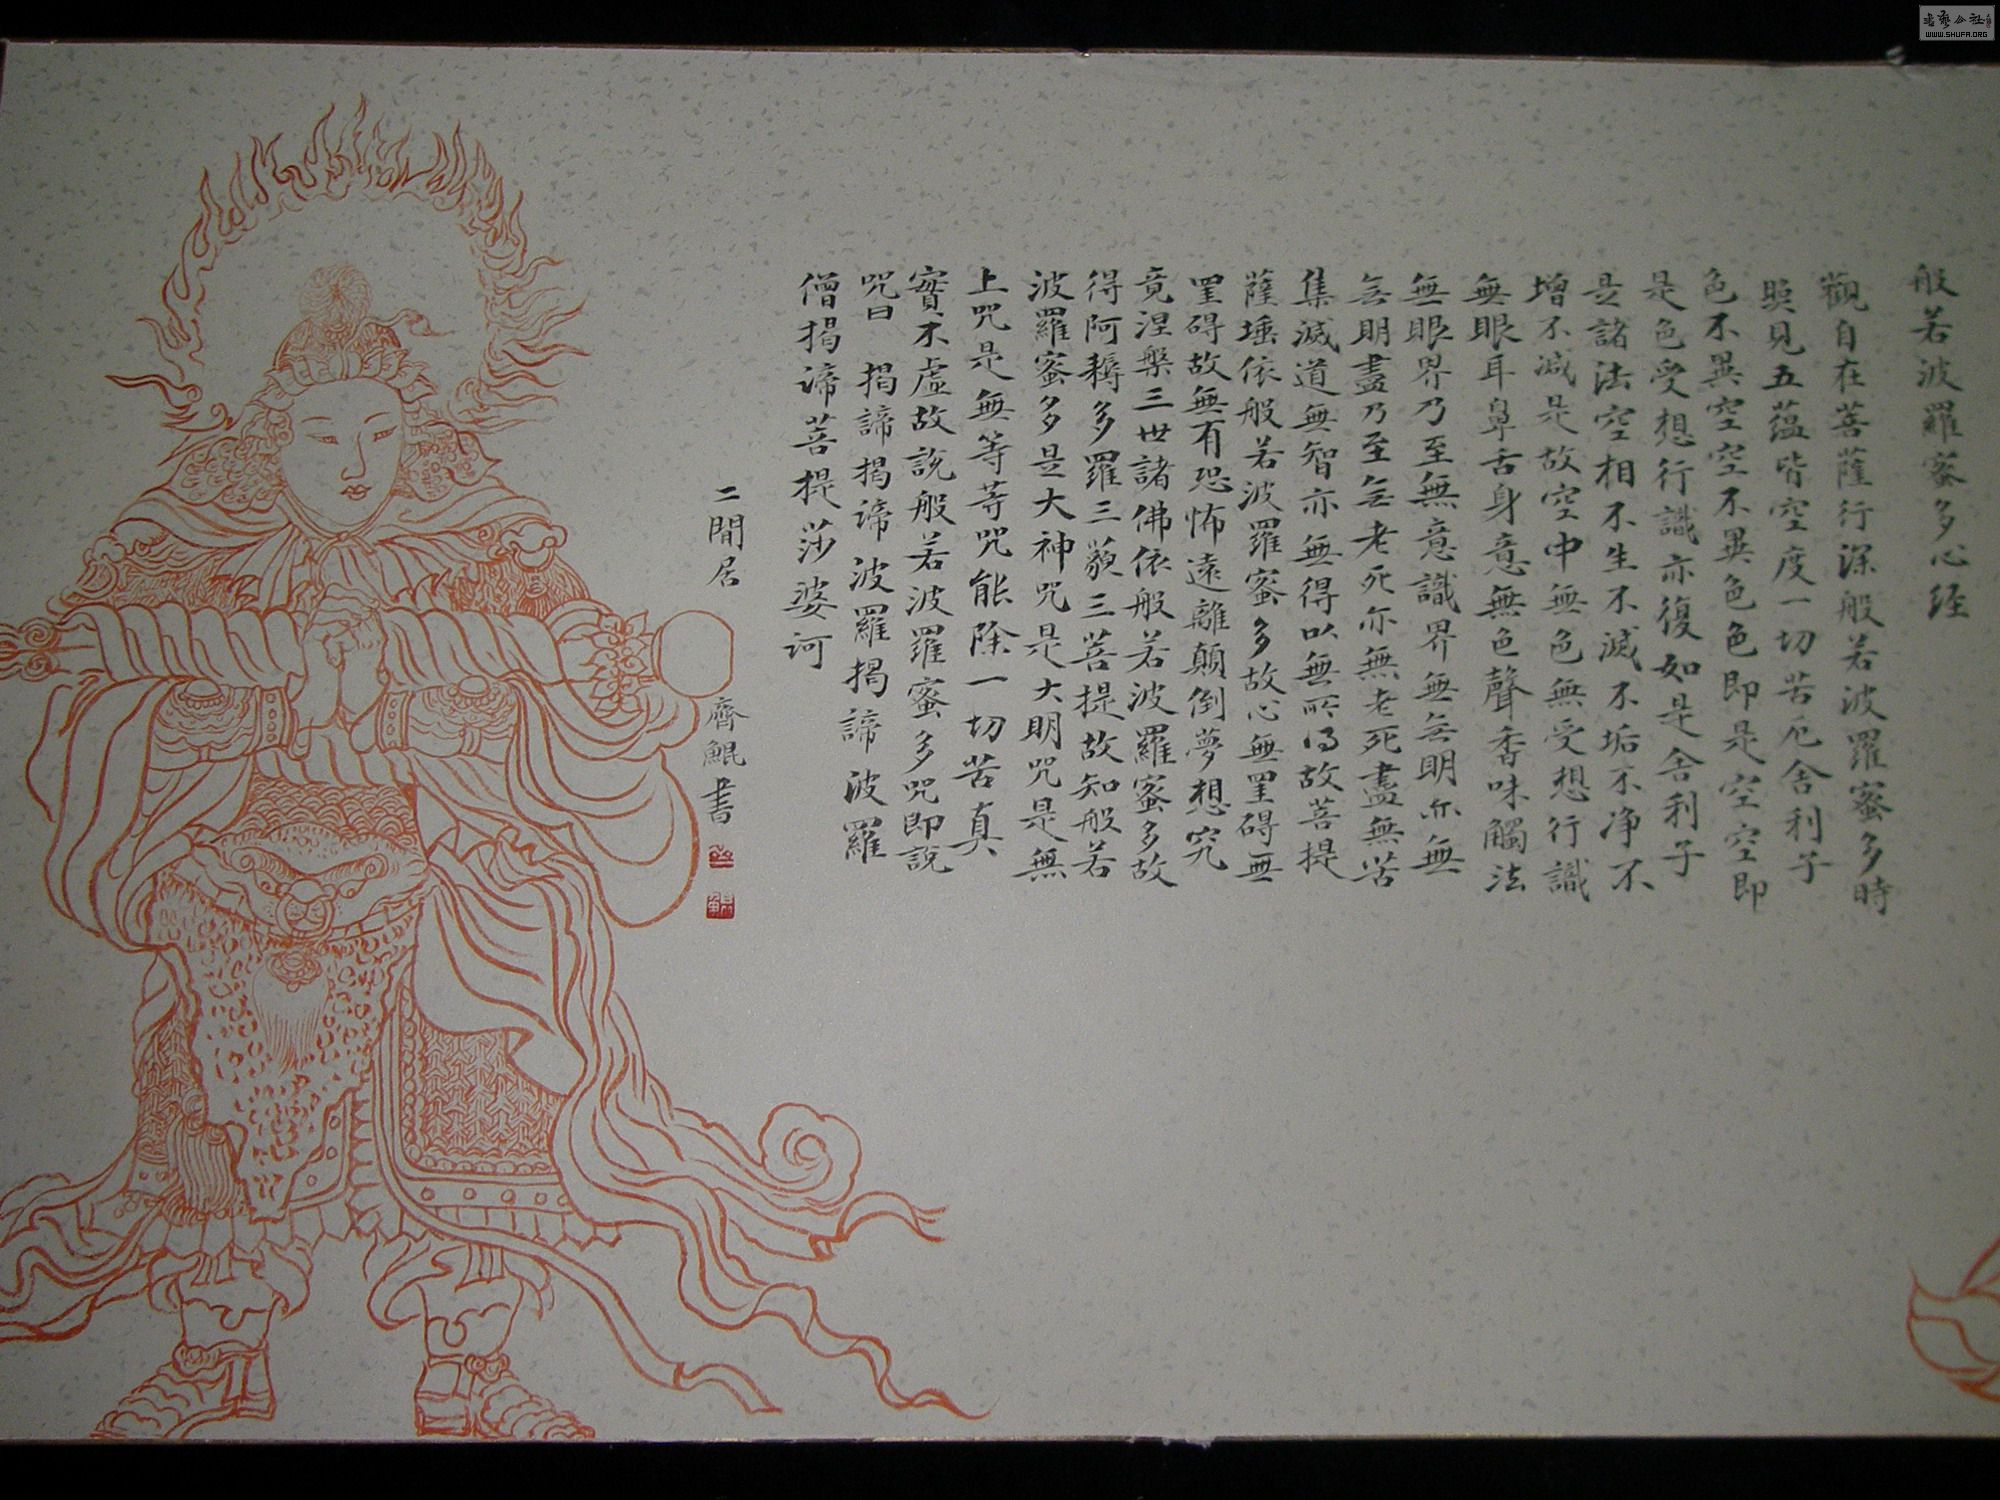 般若波羅蜜多心经
觀自在菩薩行深般若波羅蜜多時
照見五蕴皆空度一切苦厄舍利子
色不異空空不異色色即是空空即
是色受想行識亦復如是舍利子
是諸法空相不生不滅不垢不净不
增不減是故空中無色無受想行識
無眼耳鼻舌身意無色聲香味觸法
無眼界乃至無意識界無无明亦無
无明盡乃至无老死亦無老死盡無苦
集滅道無智亦無得以無所得故菩提
薩埵依般若波羅蜜多故心無罣碍無
罣碍故無有恐怖遠離顛倒夢想究
竟涅槃三世諸佛依般若波羅蜜多故
得阿耨多羅三藐三菩提故知般若
波羅蜜多是大神咒是大明咒是無
上咒是無等等咒能除一切苦真
實不虛故說般若波羅蜜多咒即說
咒曰 揭諦揭谛 波羅揭諦 波羅
僧揭谛菩提莎婆诃
二閒居
齊鯤書
書藝公社
WWW.SHUFA.ORG